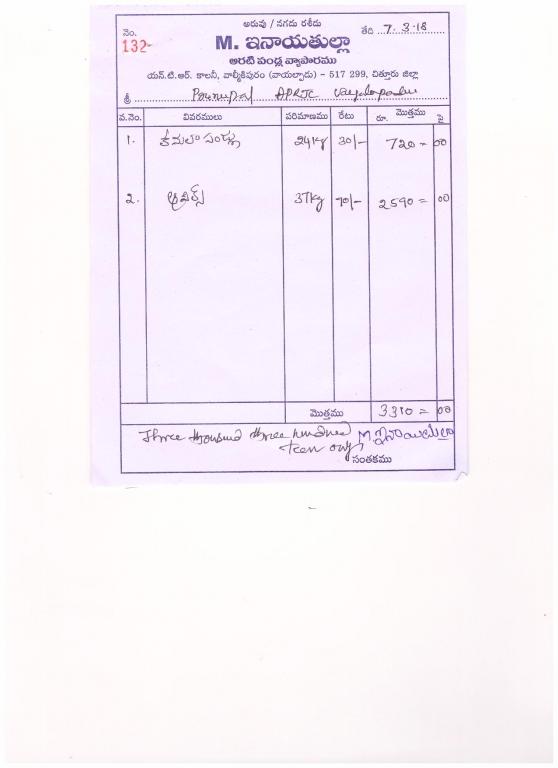 అరువు / నగదు రశీదు
నెం. 132 తేది 7.3.18
M. ఇనాయతుల్లా
అరటి పండ్ల వ్యాపారము
యన్.టి.ఆర్. కాలనీ, వాల్మీకిపురం (వాయల్పాడు) - 517 299, చిత్తూరు జిల్లా
శ్రీ Principal APRJC Vayalapadu
వ.నెం. వివరములు పరిమాణము రేటు మొత్తము రూ. పై
1. కమలా పండ్లు 24Kg 30/- 720=00
2. ఆపిల్స్ 37Kg 70/- 2590=00
మొత్తము 3310=00
Three thousand three hundred M. ఇనాయతుల్లా
teen only
సంతకము